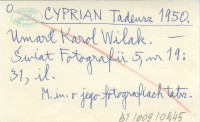 O CYPRIAN Tadeusz 1950.
Umarł Karol Wilak. —
Świat Fotografii 5, nr 19:
31, il.
M. in. o jego fotografiach tatrz.
b7/009/0645